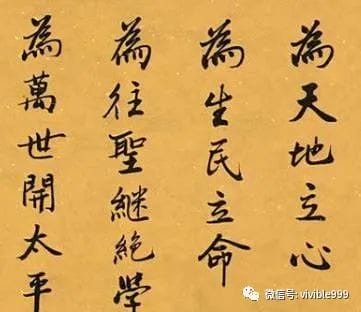 為天地立心
為生民立命
為往聖継絶學
為萬世開太平
微信号: vivible999